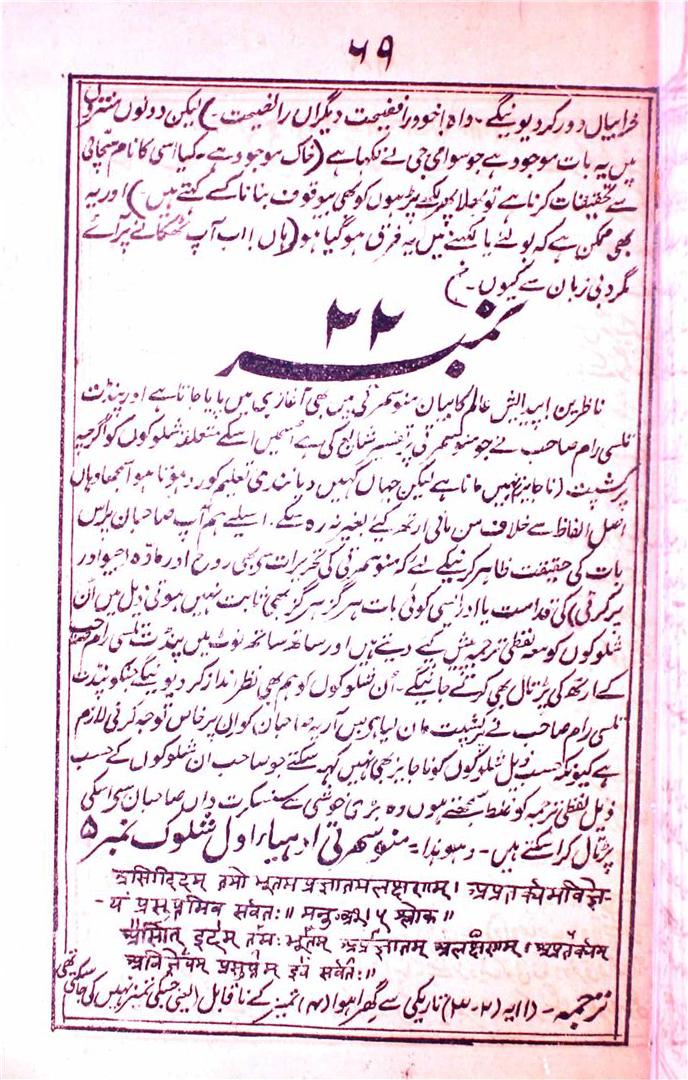 ۶۹
خرابیاں دور کر دیویگے۔ واہ! خود را فضیحت دیگراں را نصیحت۔) لیکن دونوں منتروں
میں یہ بات موجود ہے جو سوامی جی نے لکھا ہے (خاک موجود ہے۔ کیا اسی کا نام سچائی
سے تحقیقات کرنا ہے تو بھلا پھر لکھے پڑھوں کو بھی بیوقوف بنانا کسے کہتے ہیں۔) اور یہ
بھی ممکن ہے کہ بولنے یا لکھنے میں یہ فرق ہو گیا ہو (ہاں! اب آپ ٹھکانے پر آئے
مگر دبی زبان سے کیوں۔)
نمبر ۲۲
ناظرین! پیدایش عالم کا بیان منو سمرتی میں بھی آغاز ہی میں پایا جاتا ہے اور پنڈت
تلسی رام صاحب نے جو منو سمرتی پر تفسیر شایع کی ہے اسمیں اسکے متعلقہ شلوکوں کو اگرچہ
پرکشپت (ناجایز) نہیں مانا ہے لیکن جہاں کہیں دیانندی تعلیم کو رد ہوتا ہوا سمجھا وہاں
اصل الفاظ سے خلاف من مانی ارتھ کئے بغیر نہ رہ سکے۔ اسلیے ہم آپ صاحبان پر اس
بات کی حقیقت ظاہر کرنیکے لئے کہ منو سمرتی کی تحریرات سے بھی روح اور مادہ (جیو اور
پرکرتی) کی قدامت یا اور ایسی کوئی بات ہرگز ہرگز بھی ثابت نہیں ہوتی ذیل میں اُن
شلوکوں کو معہ لفظی ترجمہ پیش کئے دیتے ہیں اور ساتھ ساتھ نوٹ میں پنڈت تلسی رام صاحب
کے ارتھ کی پڑتال بھی کرتے جائینگے۔ اُن شلوکوں کو ہم بھی نظر انداز کر دیویگے جنکو پنڈت
تلسی رام صاحب نے پرکشپت مان لیا ہو پس آریہ صاحبان کو اِن پر خاص توجہ کرنی لازم
ہے کیونکہ حسب ذیل شلوکوں کو ناجایز بھی نہیں کہہ سکتے جو صاحب ان شلوکوں کے حسب
ذیل لفظی ترجمہ کو غلط سمجھتے ہوں وہ بڑی خوشی سے سنسکرت داں صاحبان سے اسکی
پڑتال کرا سکتے ہیں۔ وہو ہذا۔ منو سمرتی ادھیاء اول شلوک نمبر ۵
आसीदिदम् तमो भूतमप्रज्ञातमलक्षणम्। अप्रतर्क्यमविज्ञे-
-यं प्रसुप्तमिव सर्वतः॥ मनु॰ अ॰१ ५ श्लोक॥
आसीत् इदम् तमः भूतम् अप्रज्ञातम् अलक्षणम्। अप्रतर्क्यम्
अविज्ञेयम् प्रसुप्तम् इव सर्वतः॥
ترجمہ۔ (۱) یہ (۲-۳) تاریکی سے گھرا ہوا (۴) تمیز کے ناقابل (یعنی جسکی تمیز نہیں کی جا سکتی تھی